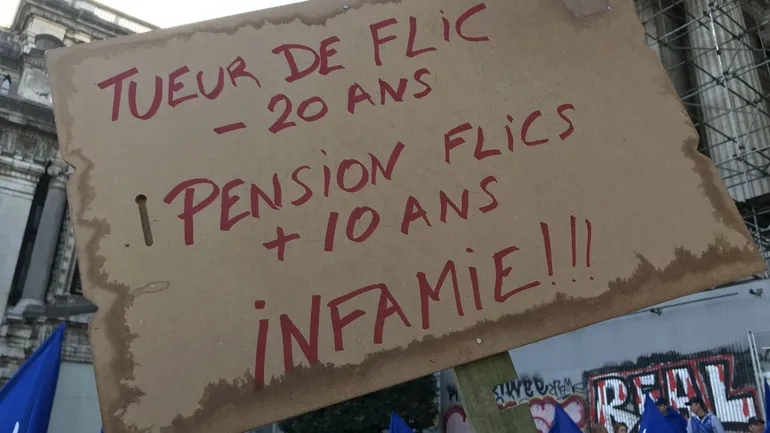 TUEUR DE FLIC
- 20 ANS
PENSION FLICS
+ 10 ANS
INFAMIE!!!
REAL